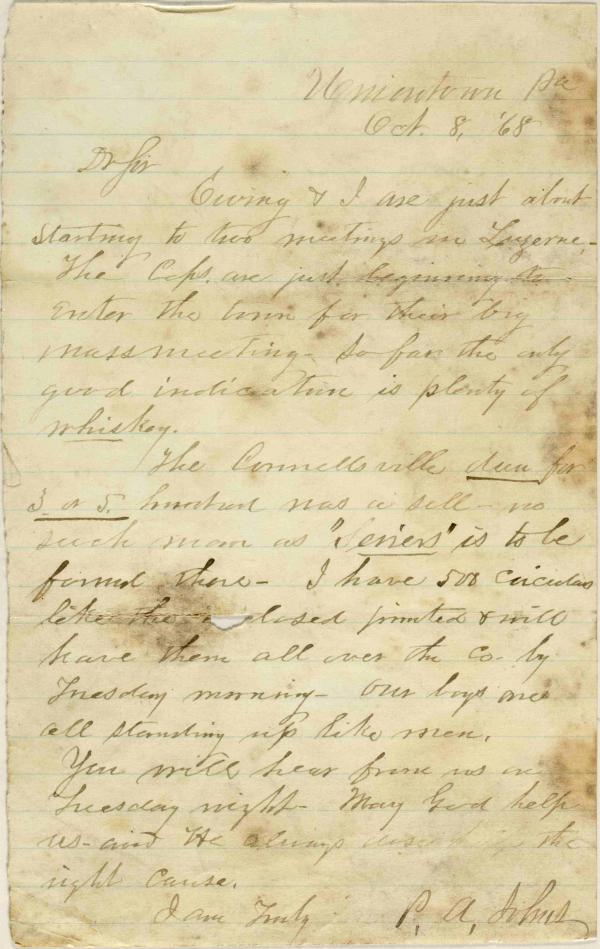 Uniontown Pa
Oct. 8, '68
Dr Sir
Ewing & I are just about
starting to two meetings in Luzerne.-
The Cops. are just beginning to
enter the town for their big
mass meeting- so far the only
good indication is plenty of
whiskey.
The Connellsville dun for
3 or 5 hundred was a sell - no
such man as "Seniers" is to be
found there - I have 500 circulars
like the closed printed & will
have them all over the Co. by
Tuesday morning - Our boys are
all standing up like men.
You will hear from us on
Tuesday night - May God help
us - and He always the
right cause.
I am Truly P. A. Johns